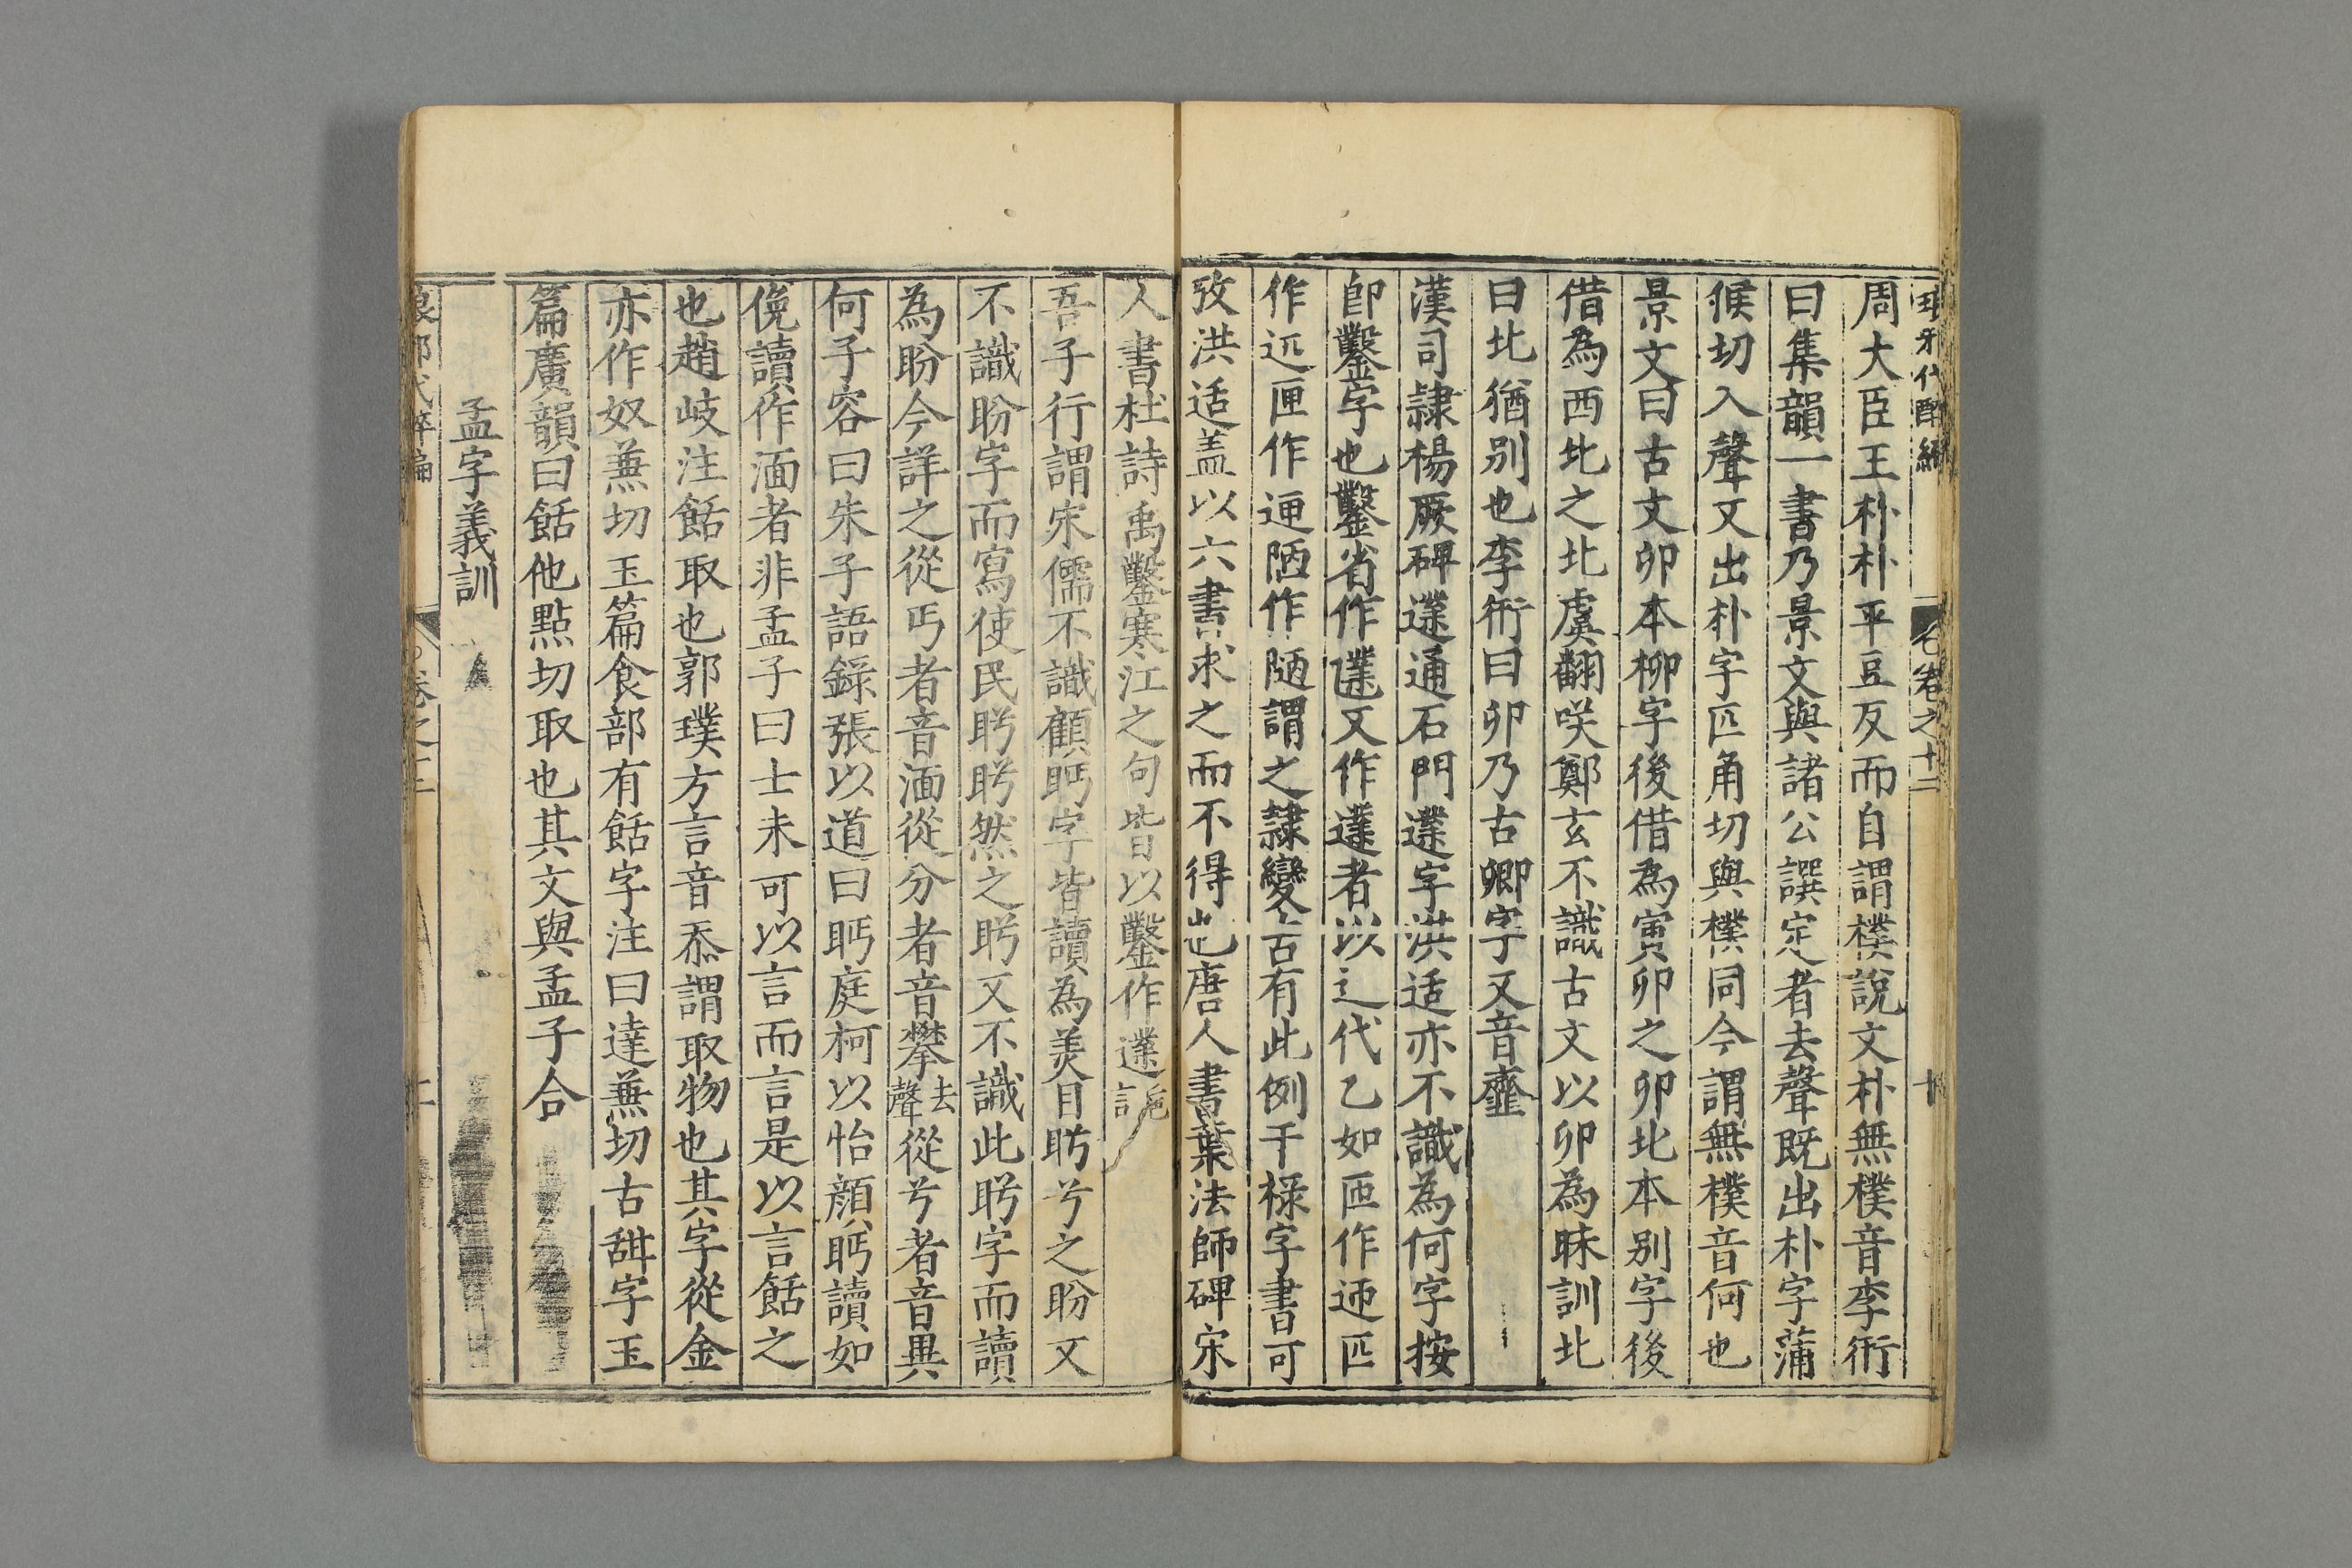 卷之十二
十
周大臣王朴朴平豆反而自謂樸說文朴無樸音李衎
曰集韻一書乃景文與諸公譔定者去聲既出朴字蒲
候切入聲又出朴字匹角切與樸同今謂無樸音何也
景文曰古文卯本柳字後借為寅卯之卯北本别字後
借為西北之北虞翻咲鄭玄不識古文以卯為昧訓北
曰北猶别也李衎曰卯乃古卿字又音虀
漢司隸楊厥碑䥣通石門䥣字洪适亦不識為何字按
即鑿字也鑿省作又作者以辶代乙如匝作迊匹
作迊匣作陋作陋謂之隸變古有此例干祿字書可
攷洪适盖以六書求之而不得也唐人書葉法師碑宋
人書杜詩禹鑿寒江之句皆以鑿作
吾子行謂宋儒不識顧眄字皆讀為美目盼兮之盼又
不識盼字而寫使民盻盻然之盻又不識此盻字而讀
為盼今詳之從丏者音湎從分者音攀去聲從兮者音異
何子容曰朱子語錄張以道曰眄庭柯以怡顔眄讀如
俛讀作湎者非孟子曰士未可以言而言是以言餂之
也趙岐注餂取也郭璞方言音忝謂取物也其字從金
亦作奴兼切玉篇食部有餂字注曰達兼切古甜字玉
篇廣韻曰餂他點切取也其文與孟子合
孟字義訓